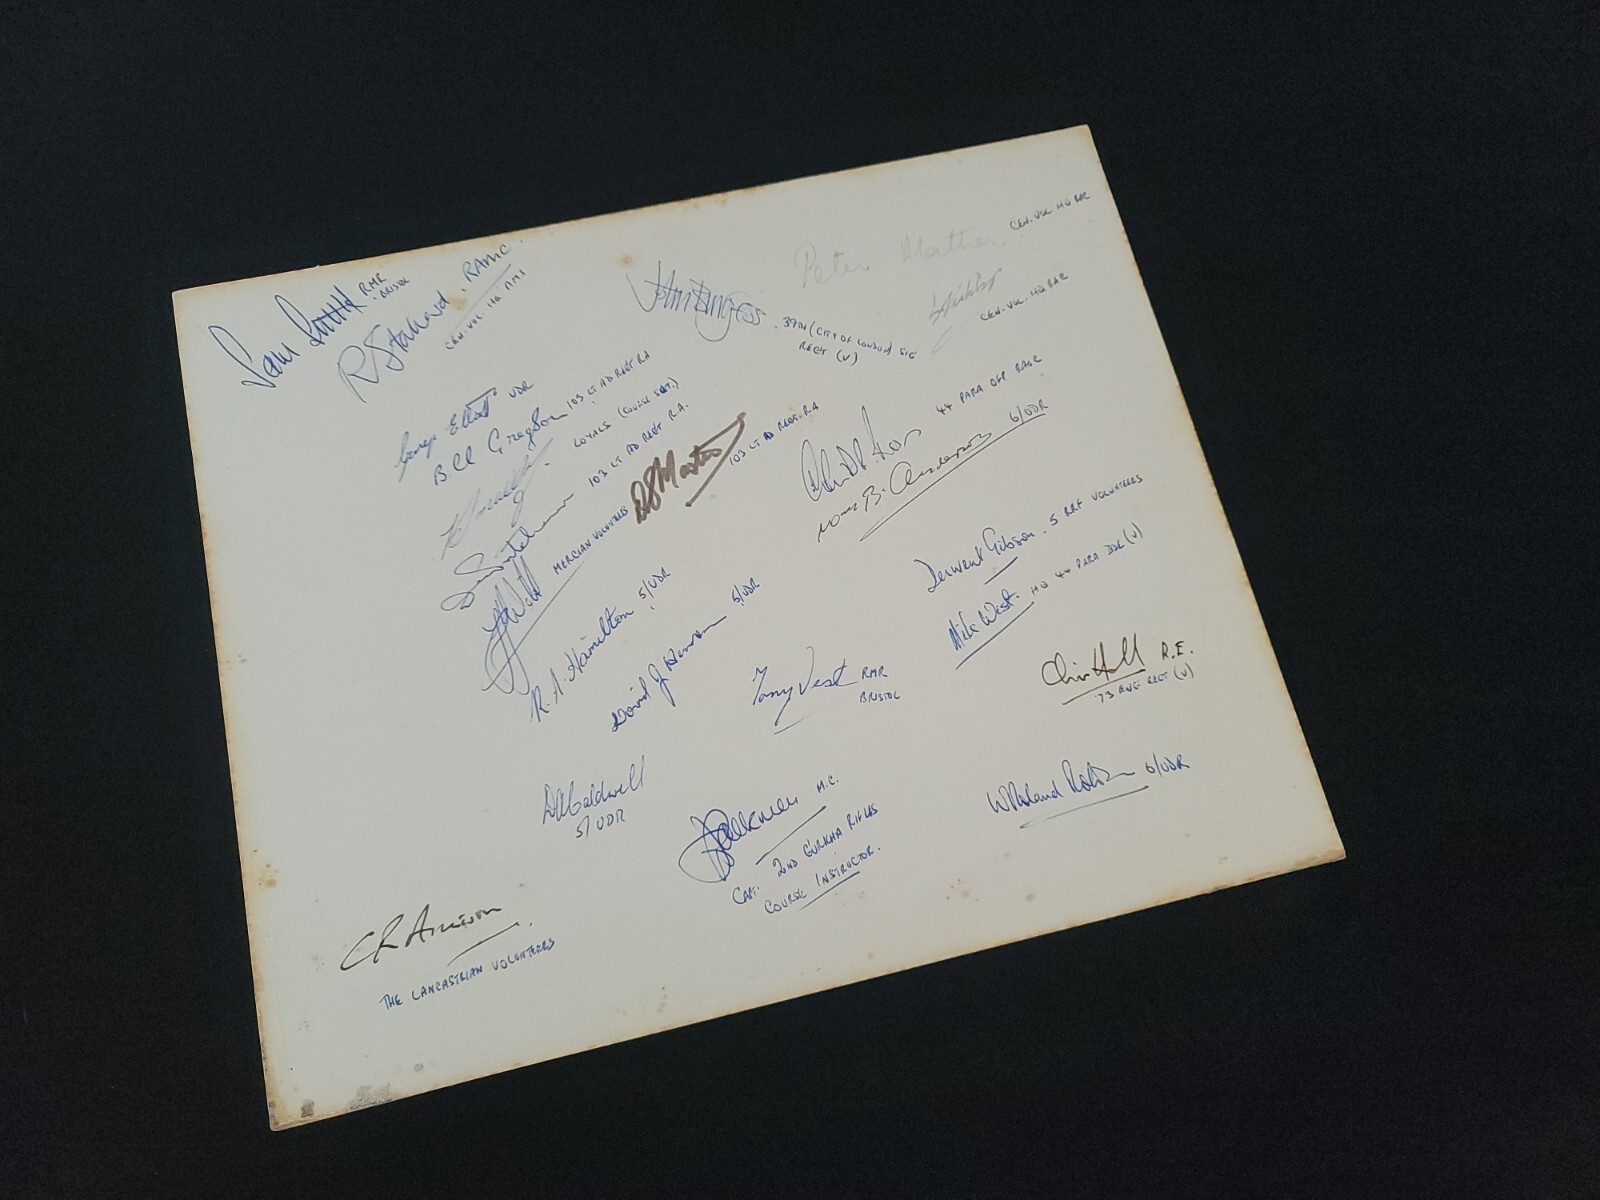 Sam Smith RMR
BRISTOL
R Stannard. RAMC.
CEN. VOL HQ RMI
John Burgess. 39TH (CITY OF LONDON) SIG
REGT (V)
Peter Mather CEN. VOL HQ RAC
CEN. VOL. HQ RAC
George Elliott UDR
Bill Gregson 103 LT AD REGT RA
LOYALS (COURSE SGT.)
103 LT AD REGT R.A.
MERCIAN VOLUNTEERS
DS Martin 103 LT AD REGT. RA
44 PARA
B. Anderson 6/UDR
Derwent Gibson. 5 RRF VOLUNTEERS
Mick West. HQ 44 PARA BDE (V)
R. A. Hamilton 5/UDR
David J. 5/UDR
Tony Vest RMR
BRISTOL
Chris Hall R.E.
73 ENG REGT (V)
DA Caldwell
5/UDR
Falkner M.C.
CAPT. 2ND GURKHA RIFLES
COURSE INSTRUCTOR.
W Roland 6/UDR
C R
THE LANCASTRIAN VOLUNTEERS